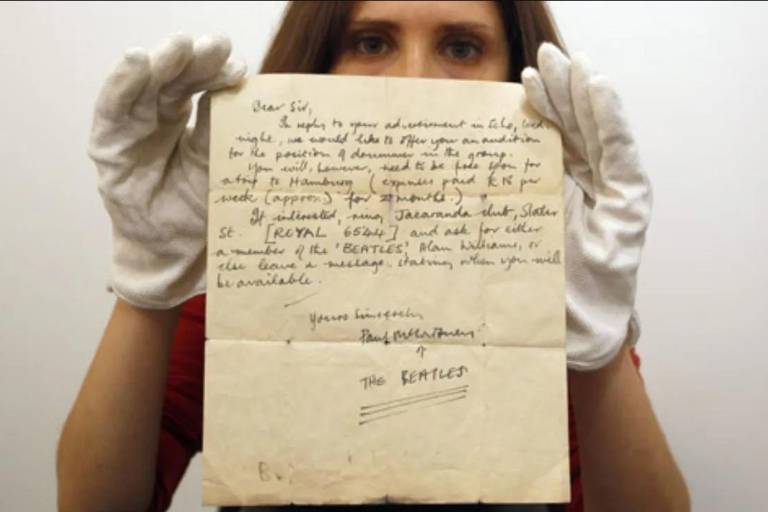 Dear Sir,
In reply to your advertisement in Echo, Wed.
night, we would like to offer you an audition
for the position of drummer in the group.
You will, however, need to be free soon for
a trip to Hamburg (expenses paid £18 per
week (approx.) for 2 months.)
If interested, ring Jacaranda club, Slater
St. [ROYAL 6544] and ask for either
a member of the 'BEATLES', Alan Williams, or
else leave a message, stating when you will
be available.
Yours Sincerely
Paul McCartney
THE BEATLES